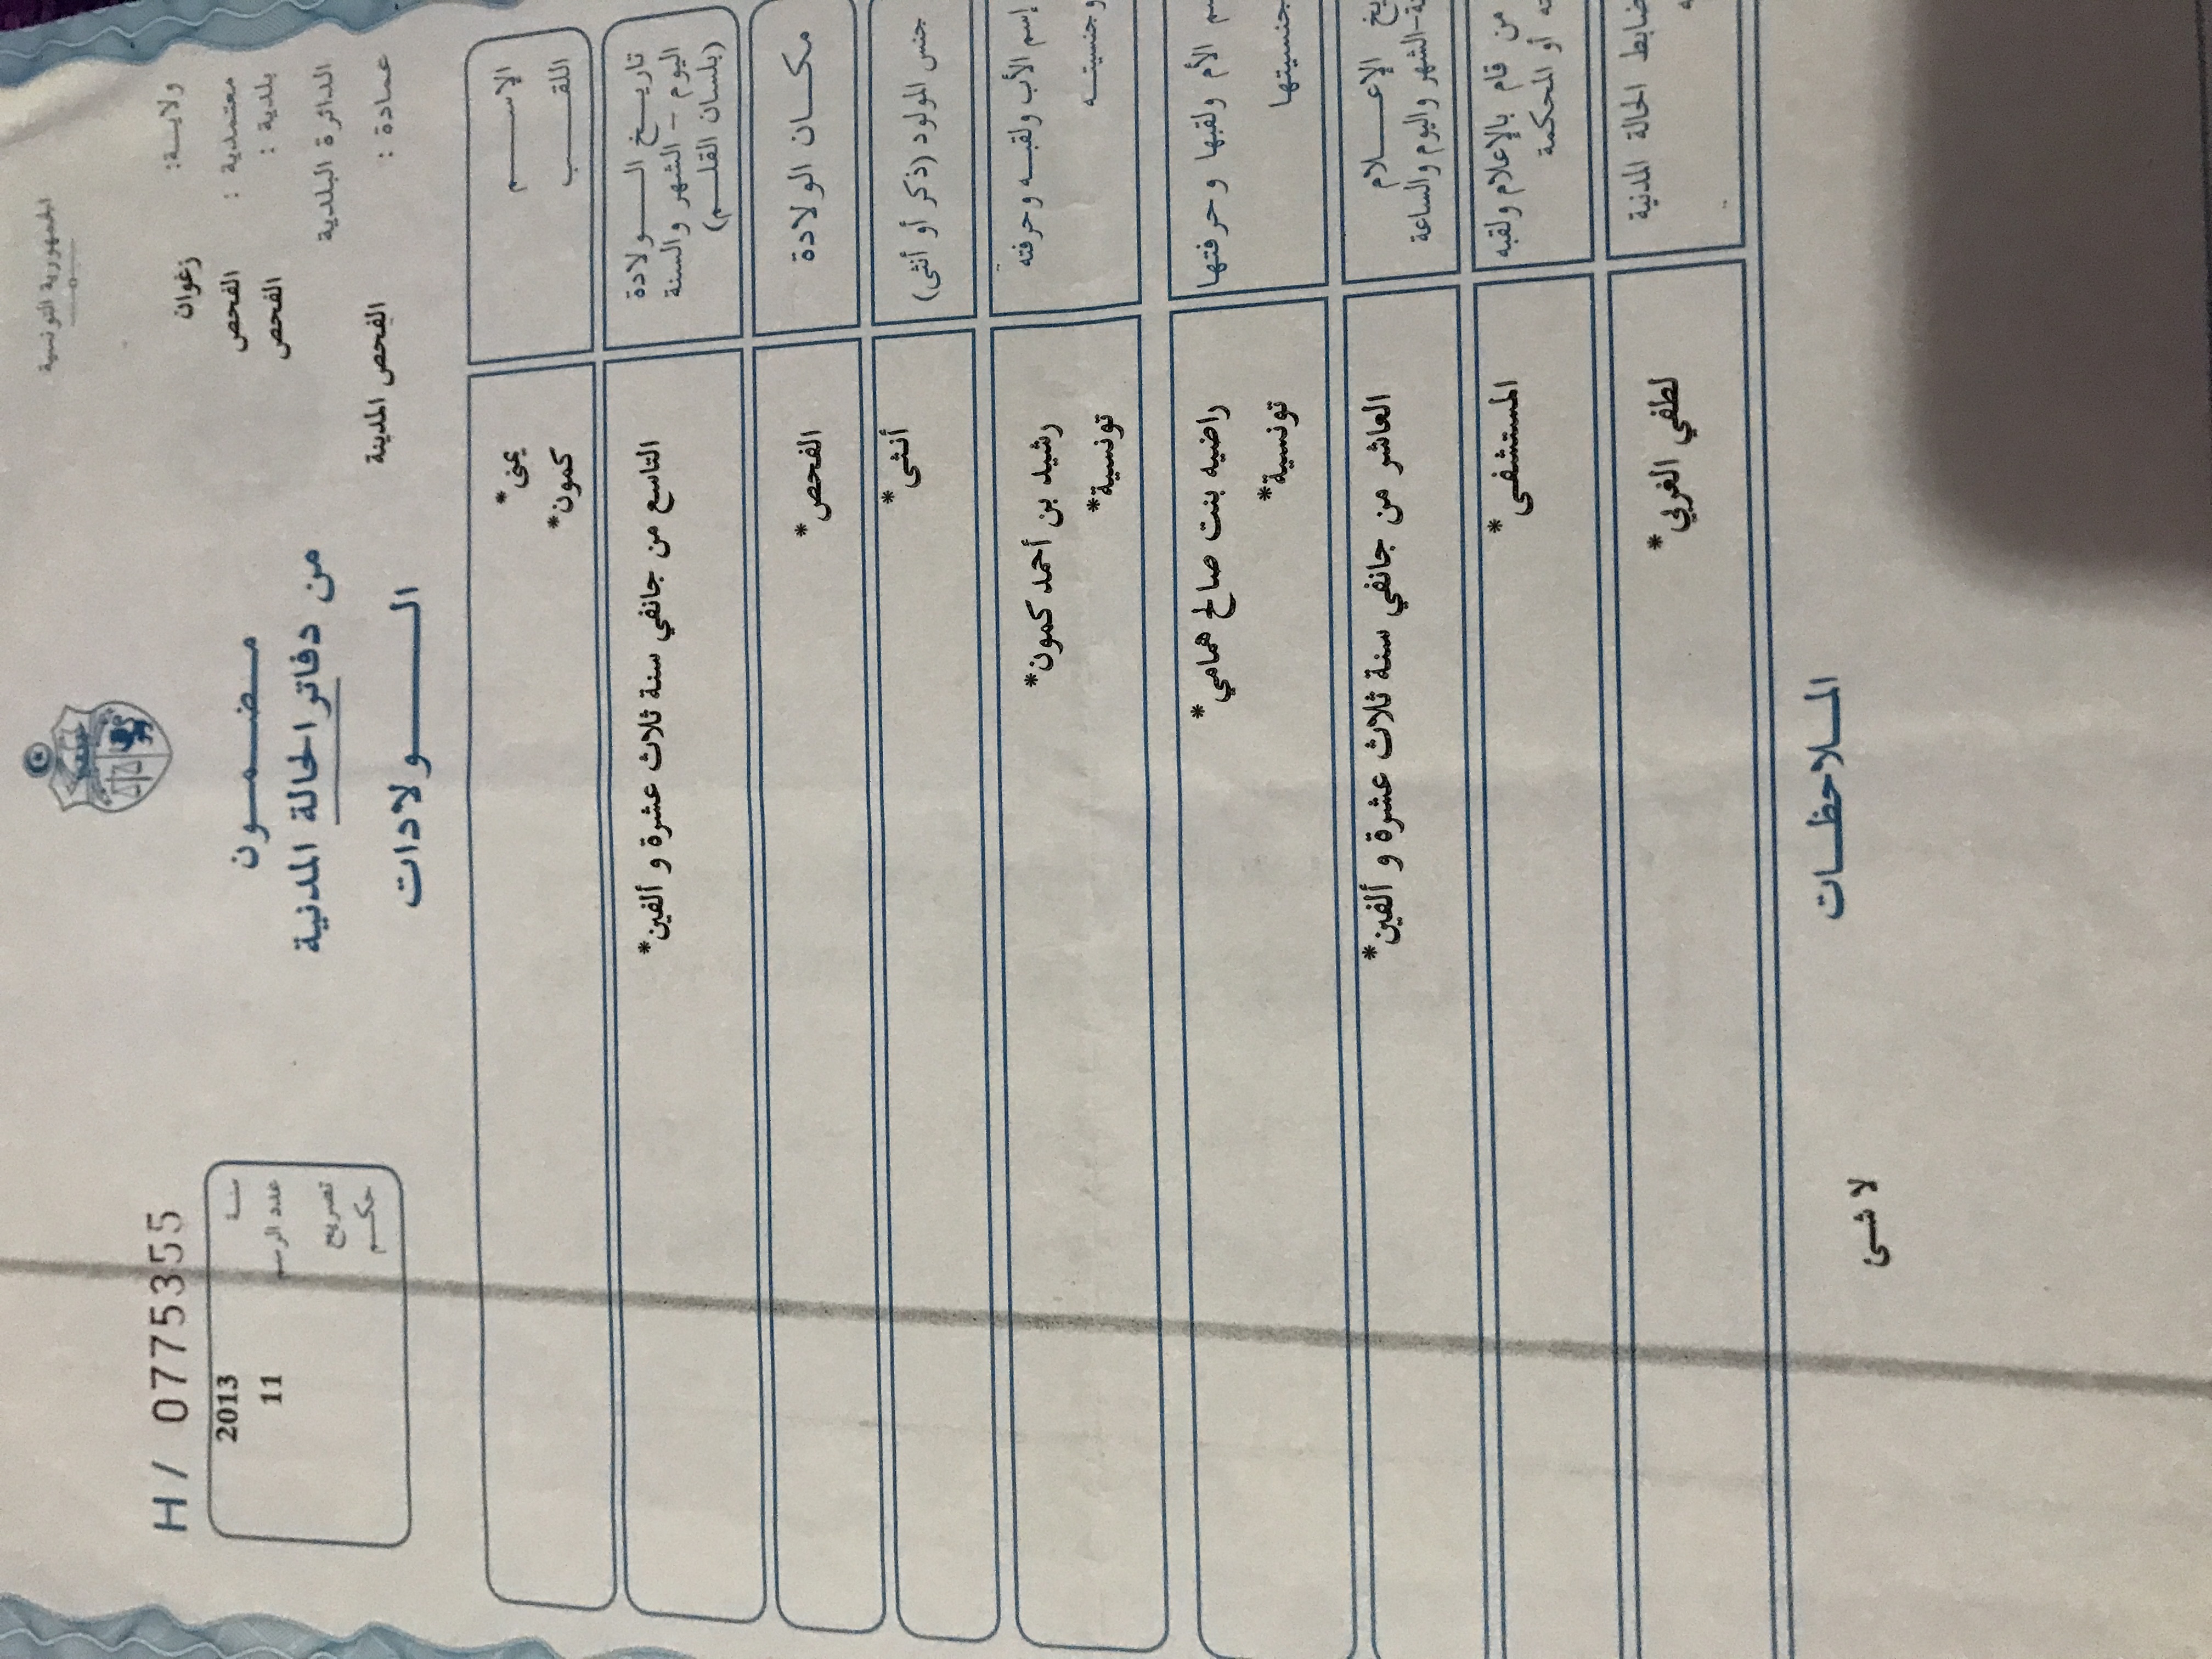 الجمهورية التونسية
ولايـة: زغوان
معتمدية : الفحص
بلدية : الفحص
الدائرة البلدية
عمادة : الفحص المدينة
مـضـمـون
من دفاتر الحالة المدنية
الـولادات
H / 0775355
سنـة 2013
عدد الرسم 11
تصريح
حكـم
الإسـم يمنى*
اللقـب كمون*
تاريـخ الـولادة
اليوم – الشهر والسنة
(بلسان القلـم)
التاسع من جانفي سنة ثلاث عشرة و ألفين*
مكـان الولادة الفحص*
جنس المولود (ذكر أو أنثى) أنثى*
إسم الأب ولقبـه وحرفته رشيد بن أحمد كمون*
وجنسيتـه تونسية*
الأم ولقبها وحرفتها راضيه بنت صالح همامي*
جنسيتها تونسية*
الإعـلام
الشهر واليوم والساعة
العاشر من جانفي سنة ثلاث عشرة و ألفين*
من قام بالإعلام ولقبه
أو المحكمة
المستشفى*
ضابط الحالة المدنية لطفي الغربي*
المـلاحظـات
لا شئ